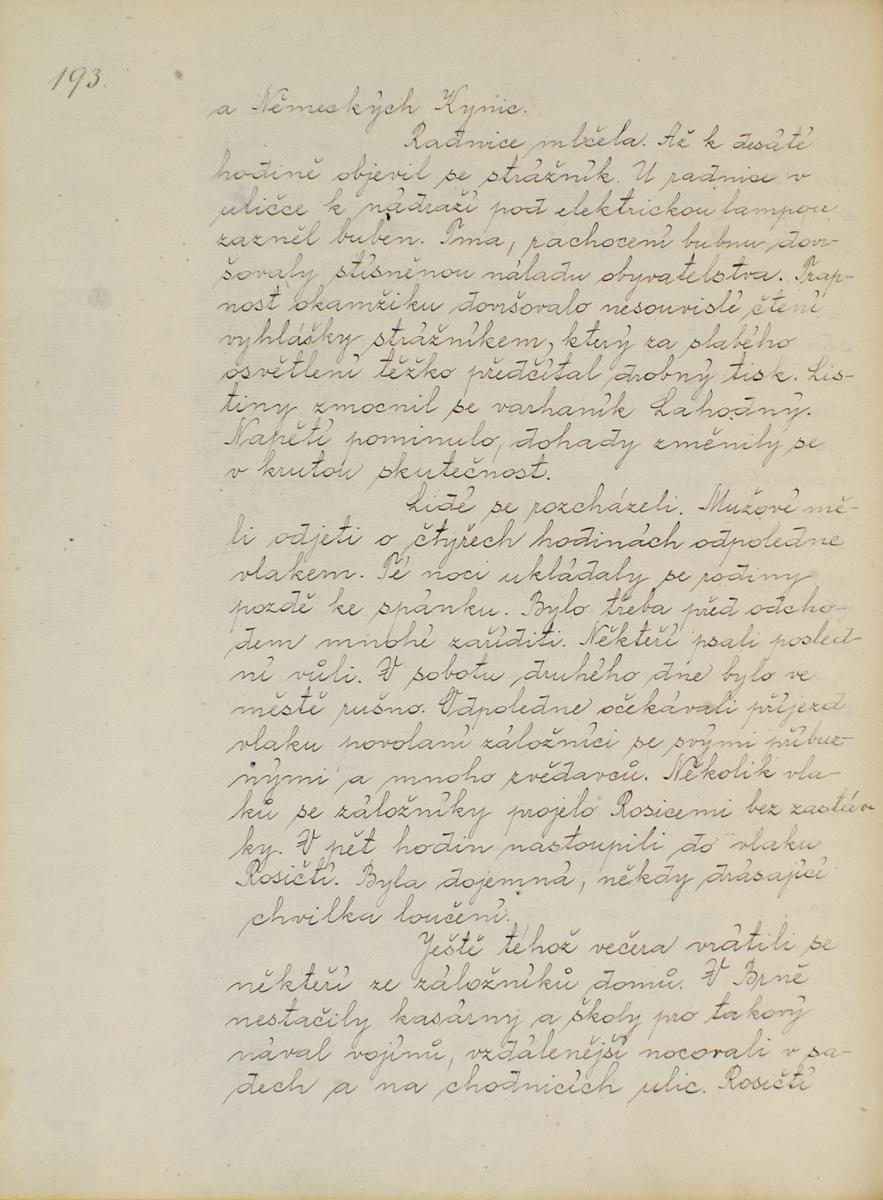 193.
a Německých Kynic.
Radnice mlčela. Až k desáté
hodině objevil se strážník. U radnice v
uličce k nádraží pod elektrickou lampou
zazněl buben. Tma, rachocení bubnu dovr-
šovaly stísněnou náladu obyvatelstva. Trap-
nost okamžiku dovršovalo nesouvislé čtení
vyhlášky strážníkem, který za slabého
osvětlení těžko předčítal drobný tisk. Lis-
tiny zmocnil se varhaník Lahodný.
Napětí pominulo, dohady změnily se
v krutou skutečnost.
Lidé se rozcházeli. Mužové mě-
li odjeti o čtyřech hodinách odpoledne
vlakem. Té noci ukládaly se rodiny
pozdě ke spánku. Bylo třeba před odcho-
dem mnohé zaříditi. Někteří psali posled-
ní vůli. V sobotu druhého dne bylo ve
městě rušno. Odpoledne očekávali příjezd
vlaku povolaní záložníci se svými příbuz-
nými a mnoho zvědavců. Několik vla-
ků se záložníky projelo Rosicemi bez zastáv-
ky. V pět hodin nastoupili do vlaku
Rosičtí. Byla dojemná, někdy drásající
chvilka loučení.
Ještě téhož večera vrátili se
někteří ze záložníků domů. V Brně
nestačily kasárny a školy pro takový
nával vojínů, vzdálenější nocovali v sa-
dech a na chodnicích ulic. Rosičtí